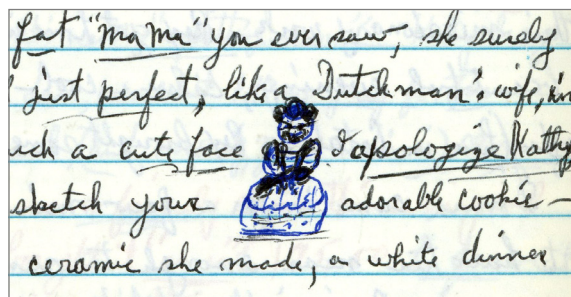 fat "MaMa" you ever saw, she surely
just perfect, like a Dutchman's wife, in
uch a cute face I apologize Kathy
sketch your adorable cookie –
ceramic she made, a white dinner